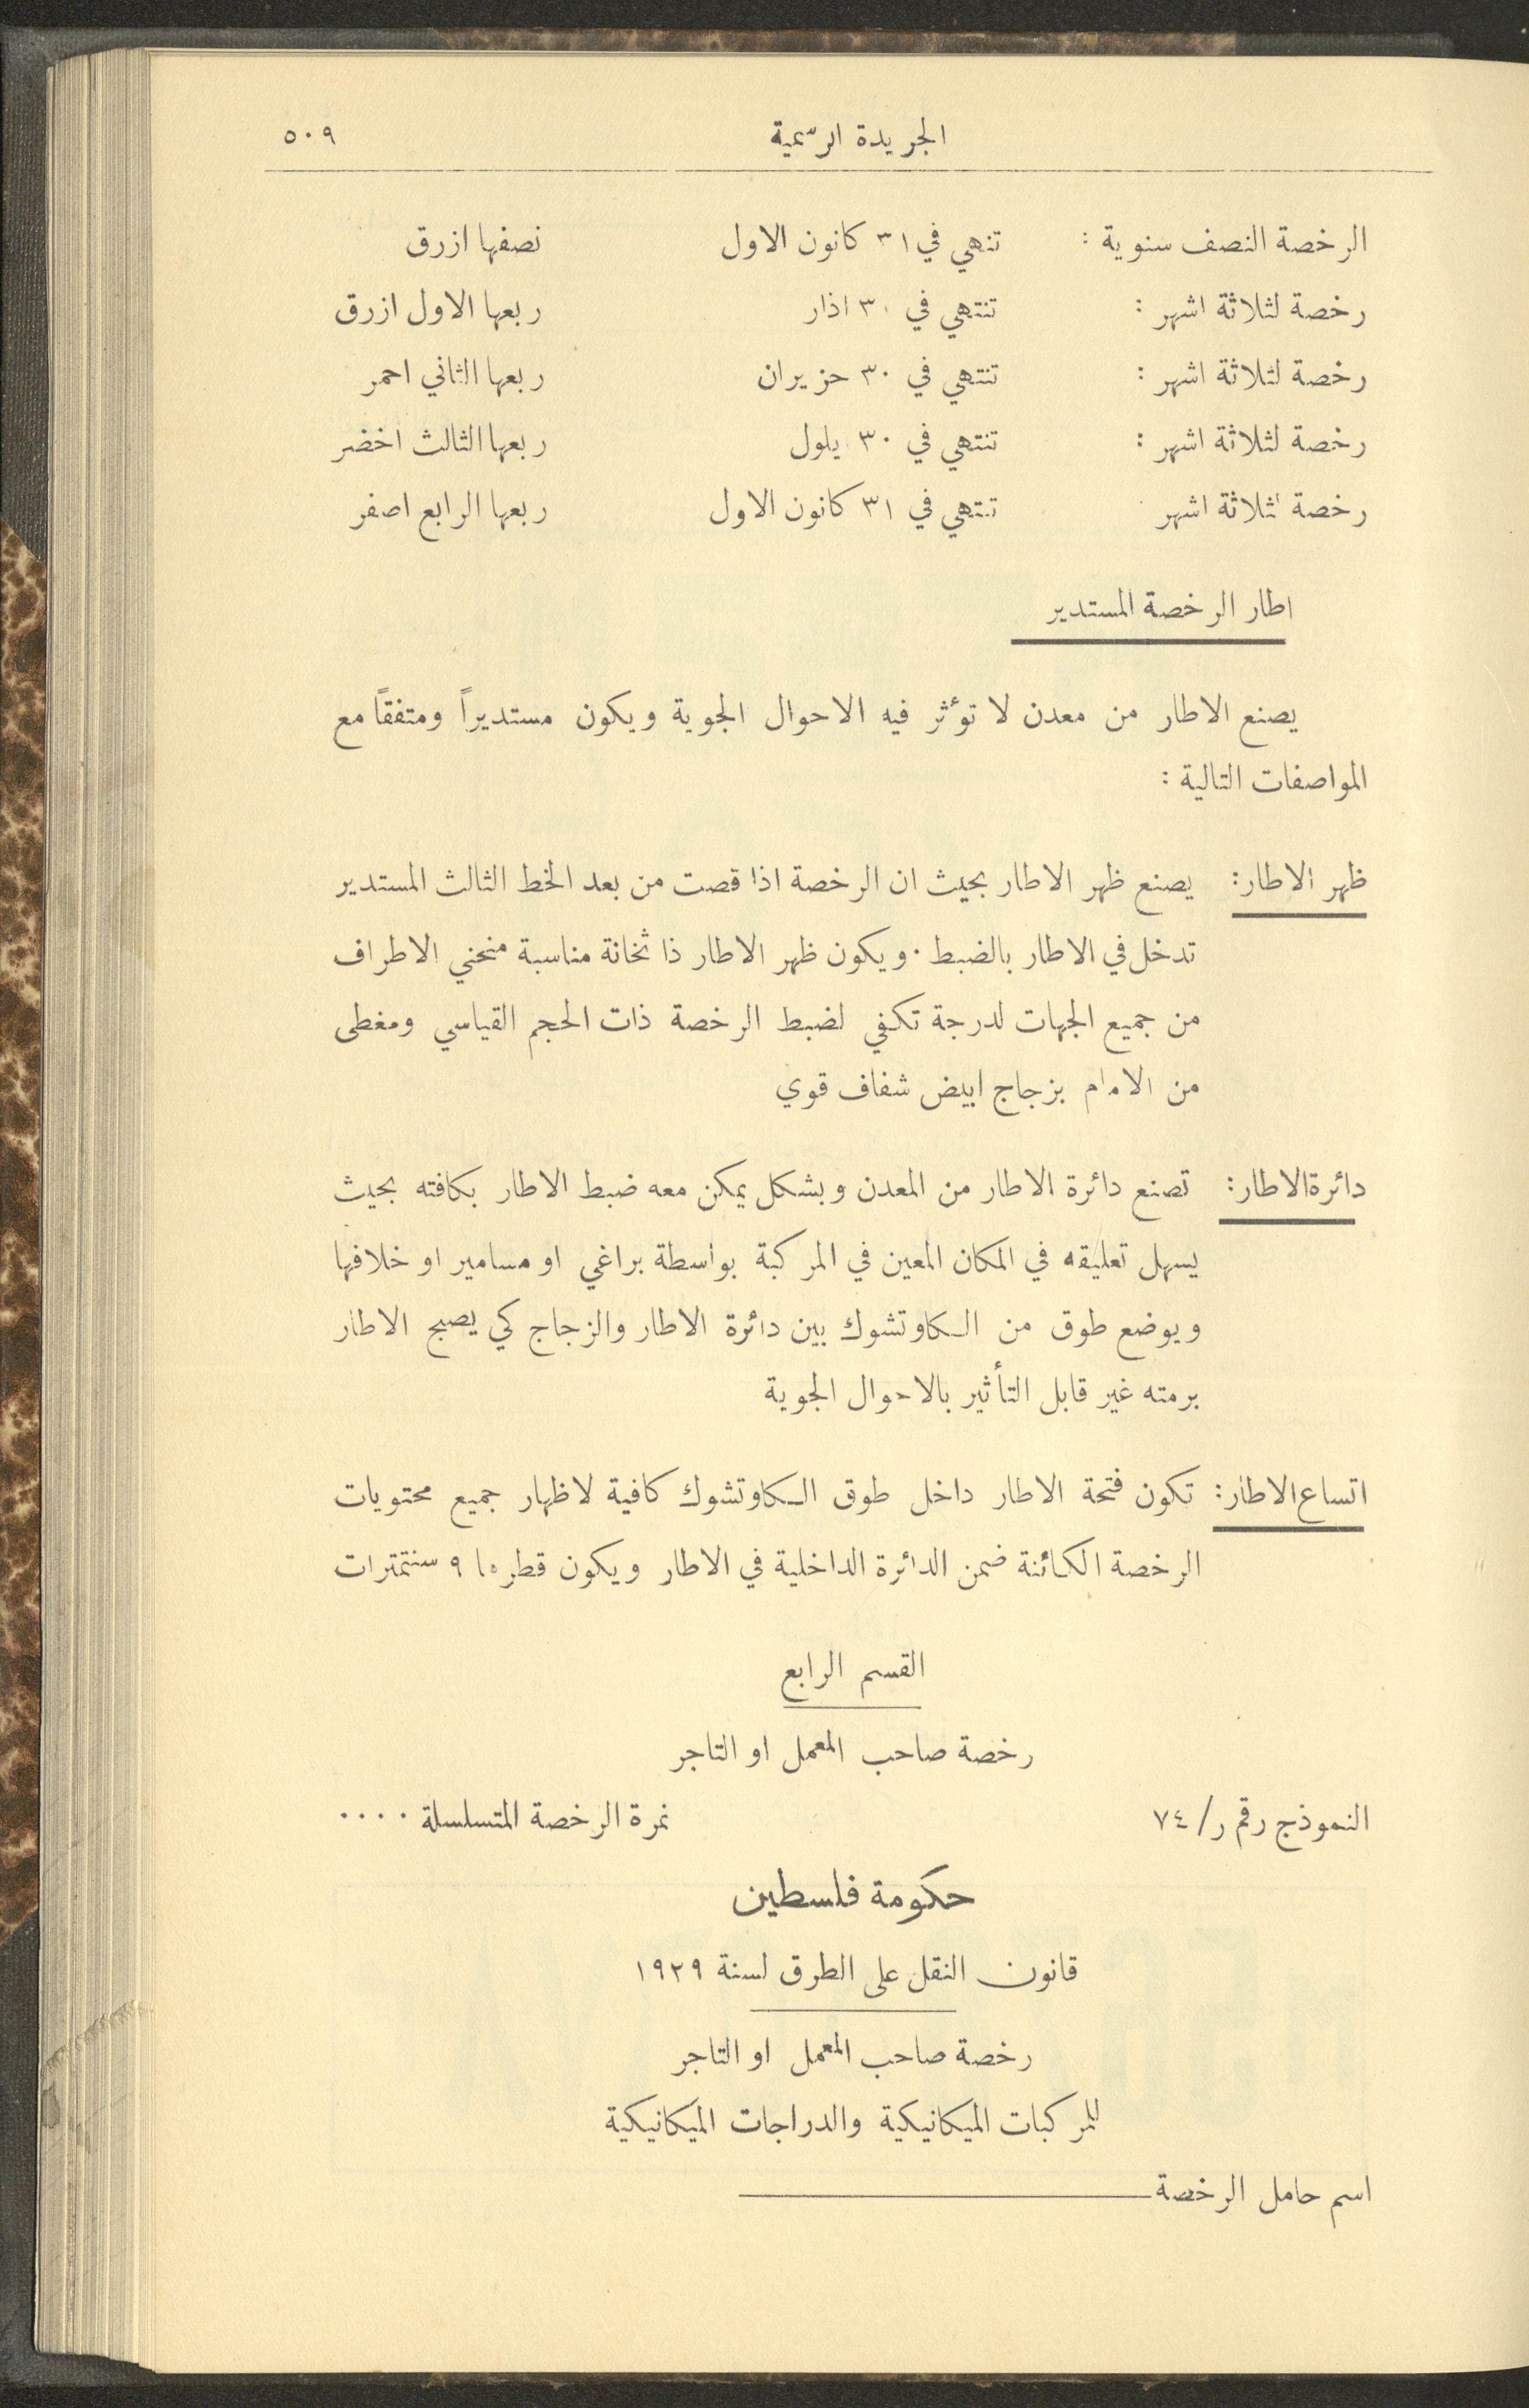 الجريدة الرسمية ٥٠٩
الرخصة النصف سنوية : تنهي في ٣١ كانون الاول نصفها ازرق
رخصة لثلاثة اشهر : تنتهي في ٣٠ اذار ربعها الاول ازرق
رخصة لثلاثة اشهر : تنتهي في ٣٠ حزيران ربعها الثاني احمر
رخصة لثلاثة اشهر : تنتهي في ٣٠ يلول ربعها الثالث اخضر
رخصة لثلاثة اشهر تنتهي في ٣١ كانون الاول ربعها الرابع اصفر
اطار الرخصة المستدير
يصنع الاطار من معدن لا تؤثر فيه الاحوال الجوية ويكون مستديراً ومتفقاً مع
المواصفات التالية :
ظهر الاطار : يصنع ظهر الاطار بحيث ان الرخصة اذا قصت من بعد الخط الثالث المستدير
تدخل في الاطار بالضبط . ويكون ظهر الاطار ذا ثخانة مناسبة منحني الاطراف
من جميع الجهات لدرجة تكفي لضبط الرخصة ذات الحجم القياسي ومغطى
من الامام بزجاج ابيض شفاف قوي
دائرة الاطار : تصنع دائرة الاطار من المعدن وبشكل يمكن معه ضبط الاطار بكافته بحيث
يسهل تعليقه في المكان المعين في المركبة بواسطة براغي او مسامير او خلافها
ويوضع طوق من الكاوتشوك بين دائرة الاطار والزجاج كي يصبح الاطار
برمته غير قابل التأثير بالاحوال الجوية
اتساع الاطار : تكون فتحة الاطار داخل طوق الكاوتشوك كافية لاظهار جميع محتويات
الرخصة الكائنة ضمن الدائرة الداخلية في الاطار ويكون قطرها ٩ سنتمترات
القسم الرابع
رخصة صاحب المعمل او التاجر
النموذج رقم ر/ ٧٤ نمرة الرخصة المتسلسلة ....
حكومة فلسطين
قانون النقل على الطرق لسنة ١٩٢٩
رخصة صاحب المعمل او التاجر
للمركبات الميكانيكية والدراجات الميكانيكية
اسم حامل الرخصة